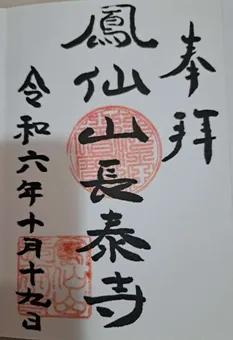 奉拜
鳳仙山長泰寺
令和六年十月十九日